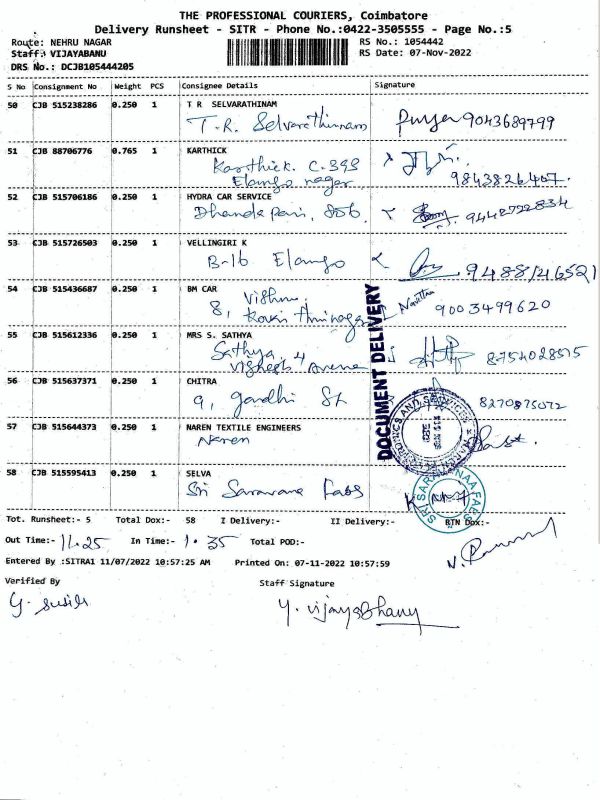 THE PROFESSIONAL COURIERS, Coimbatore
Delivery Runsheet - SITR - Phone No.:0422-3505555 - Page No.:5
Route: NEHRU NAGAR
RS No.: 1054442
Staff: VIJAYABANU
RS Date: 07-Nov-2022
DRS No.: DCJB105444205
S No Consignment No Weight PCS Consignee Details Signature
50 CJB 515238286 0.250 1 T R SELVARATHINAM
T.R. Selvarathinam 9043689799
51 CJB 88706776 0.765 1 KARTHICK
Karthick. C.393
Elango nagar 9843826407.
52 CJB 515706186 0.250 1 HYDRA CAR SERVICE
Dhandapani, 856. 9442722834
53 CJB 515726503 0.250 1 VELLINGIRI K
B-16 Elango 9488146521
54 CJB 515436687 0.250 1 BM CAR
Vishnu
8, 9003499620
55 CJB 515612336 0.250 1 MRS S. SATHYA
Sathya, 4
Avenue 8754028515
56 CJB 515637371 0.250 1 CHITRA
9, gandhi St 8270875072
57 CJB 515644373 0.250 1 NAREN TEXTILE ENGINEERS
Naren
58 CJB 515595413 0.250 1 SELVA
Sri Saravana Fabs
DOCUMENT DELIVERY
Tot. Runsheet:- 5 Total Dox:- 58 I Delivery:- II Delivery:- RTN Dox:-
Out Time:- 11.25 In Time:- 1.35 Total POD:-
Entered By :SITRA1 11/07/2022 10:57:25 AM Printed On: 07-11-2022 10:57:59
Verified By Staff Signature
Y. vijayabhanu